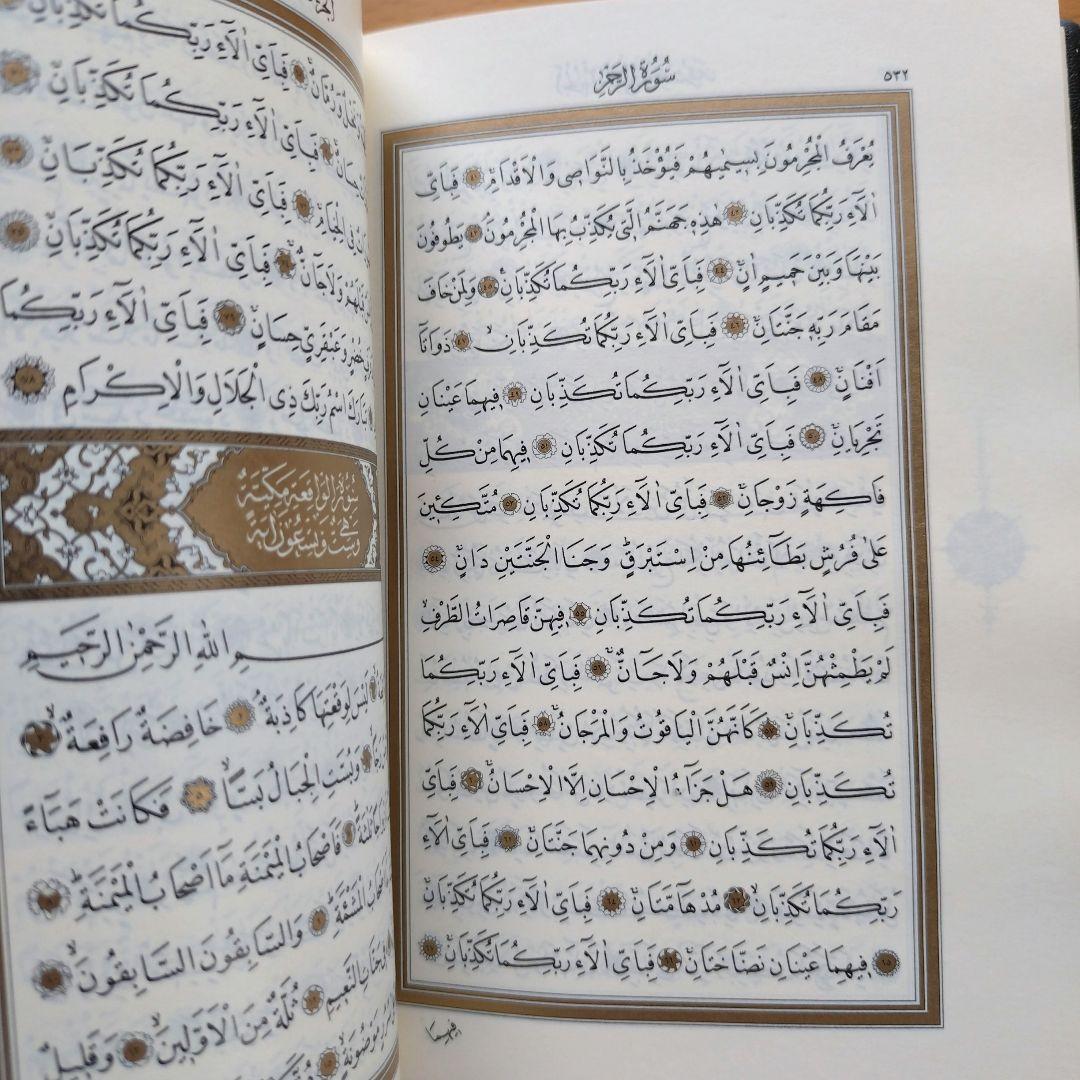 سُورَةُ الرَّحْمٰنِ
٥٣٢
يُعْرَفُ الْمُجْرِمُونَ بِسِيمٰيهُمْ فَيُؤْخَذُ بِالنَّوَاصِى وَالْاَقْدَامِۚ ﴿٤١﴾ فَبِاَىِّ
اٰلَٓاءِ رَبِّكُمَا تُكَذِّبَانِ ﴿٤٢﴾ هٰذِهِ جَهَنَّمُ الَّتٖى يُكَذِّبُ بِهَا الْمُجْرِمُونَۘ ﴿٤٣﴾ يَطُوفُونَ
بَيْنَهَا وَبَيْنَ حَمٖيمٍ اٰنٍۚ ﴿٤٤﴾ فَبِاَىِّ اٰلَٓاءِ رَبِّكُمَا تُكَذِّبَانِ۟ ﴿٤٥﴾ وَلِمَنْ خَافَ
مَقَامَ رَبِّهٖ جَنَّتَانِۚ ﴿٤٦﴾ فَبِاَىِّ اٰلَٓاءِ رَبِّكُمَا تُكَذِّبَانِۙ ﴿٤٧﴾ ذَوَاتَٓا
اَفْنَانٍۚ ﴿٤٨﴾ فَبِاَىِّ اٰلَٓاءِ رَبِّكُمَا تُكَذِّبَانِ ﴿٤٩﴾ فٖيهِمَا عَيْنَانِ
تَجْرِيَانِۚ ﴿٥٠﴾ فَبِاَىِّ اٰلَٓاءِ رَبِّكُمَا تُكَذِّبَانِ ﴿٥١﴾ فٖيهِمَا مِنْ كُلِّ
فَاكِهَةٍ زَوْجَانِۚ ﴿٥٢﴾ فَبِاَىِّ اٰلَٓاءِ رَبِّكُمَا تُكَذِّبَانِ ﴿٥٣﴾ مُتَّكِـٖٔينَ
عَلٰى فُرُشٍ بَطَٓائِنُهَا مِنْ اِسْتَبْرَقٍؕ وَجَنَا الْجَنَّتَيْنِ دَانٍۚ ﴿٥٤﴾
فَبِاَىِّ اٰلَٓاءِ رَبِّكُمَا تُكَذِّبَانِ ﴿٥٥﴾ فٖيهِنَّ قَاصِرَاتُ الطَّرْفِۙ
لَمْ يَطْمِثْهُنَّ اِنْسٌ قَبْلَهُمْ وَلَا جَٓانٌّۚ ﴿٥٦﴾ فَبِاَىِّ اٰلَٓاءِ رَبِّكُمَا
تُكَذِّبَانِۚ ﴿٥٧﴾ كَاَنَّهُنَّ الْيَاقُوتُ وَالْمَرْجَانُۚ ﴿٥٨﴾ فَبِاَىِّ اٰلَٓاءِ رَبِّكُمَا
تُكَذِّبَانِ ﴿٥٩﴾ هَلْ جَزَٓاءُ الْاِحْسَانِ اِلَّا الْاِحْسَانُۚ ﴿٦٠﴾ فَبِاَىِّ
اٰلَٓاءِ رَبِّكُمَا تُكَذِّبَانِ ﴿٦١﴾ وَمِنْ دُونِهِمَا جَنَّتَانِۚ ﴿٦٢﴾ فَبِاَىِّ اٰلَٓاءِ
رَبِّكُمَا تُكَذِّبَانِۙ ﴿٦٣﴾ مُدْهَٓامَّتَانِۚ ﴿٦٤﴾ فَبِاَىِّ اٰلَٓاءِ رَبِّكُمَا تُكَذِّبَانِۚ
﴿٦٥﴾ فٖيهِمَا عَيْنَانِ نَضَّاخَتَانِۚ ﴿٦٦﴾ فَبِاَىِّ اٰلَٓاءِ رَبِّكُمَا تُكَذِّبَانِۚ ﴿٦٧﴾
فيهما
وَرُمَّانٌۚ فَبِاَىِّ اٰلَٓاءِ رَبِّكُمَا تُكَذِّبَانِ
حِسَانٌۚ فَبِاَىِّ اٰلَٓاءِ رَبِّكُمَا تُكَذِّبَانِۚ
فِى الْخِيَامِۚ ﴿٧٢﴾ فَبِاَىِّ اٰلَٓاءِ رَبِّكُمَا تُكَذِّبَانِۚ
قَبْلَهُمْ وَلَا جَٓانٌّۚ ﴿٧٤﴾ فَبِاَىِّ اٰلَٓاءِ رَبِّكُمَا تُكَذِّبَانِۚ ﴿٧٥﴾
خُضْرٍ وَعَبْقَرِىٍّ حِسَانٍۚ ﴿٧٦﴾ فَبِاَىِّ اٰلَٓاءِ رَبِّكُمَا
تَبَارَكَ اسْمُ رَبِّكَ ذِى الْجَلَالِ وَالْاِكْرَامِ ﴿٧٨﴾
سُورَةُ الْوَاقِعَةِ مَكِّيَّةٌ
وَهِىَ سِتٌّ وَتِسْعُونَ اٰيَةً
بِسْمِ اللّٰهِ الرَّحْمٰنِ الرَّحٖيمِ
لَيْسَ لِوَقْعَتِهَا كَاذِبَةٌۘ ﴿٢﴾ خَافِضَةٌ رَافِعَةٌۙ ﴿٣﴾
وَبُسَّتِ الْجِبَالُ بَسًّاۙ ﴿٥﴾ فَكَانَتْ هَبَٓاءً
فَاَصْحَابُ الْمَيْمَنَةِ مَٓا اَصْحَابُ الْمَيْمَنَةِؕ ﴿٨﴾
الْمَشْـَٔمَةِؕ ﴿٩﴾ وَالسَّابِقُونَ السَّابِقُونَۙ ﴿١٠﴾
النَّعٖيمِ ﴿١٢﴾ ثُلَّةٌ مِنَ الْاَوَّلٖينَۙ ﴿١٣﴾ وَقَلٖيلٌ
مَوْضُونَةٍۙ ﴿١٥﴾